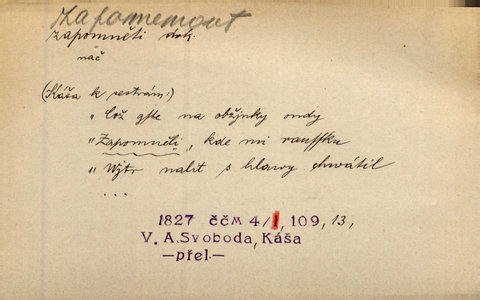 zapomenout
zapomněti dok.
nač
(Káša k sestrám:)
"Což gste na obžjnky ondy
"Zapomněli, kde mi rauſſku
"Wjtr nalit s hlawy chwátil
...
1827 ččM 4/1, 109, 13,
V. A. Svoboda, Káša
—přel—